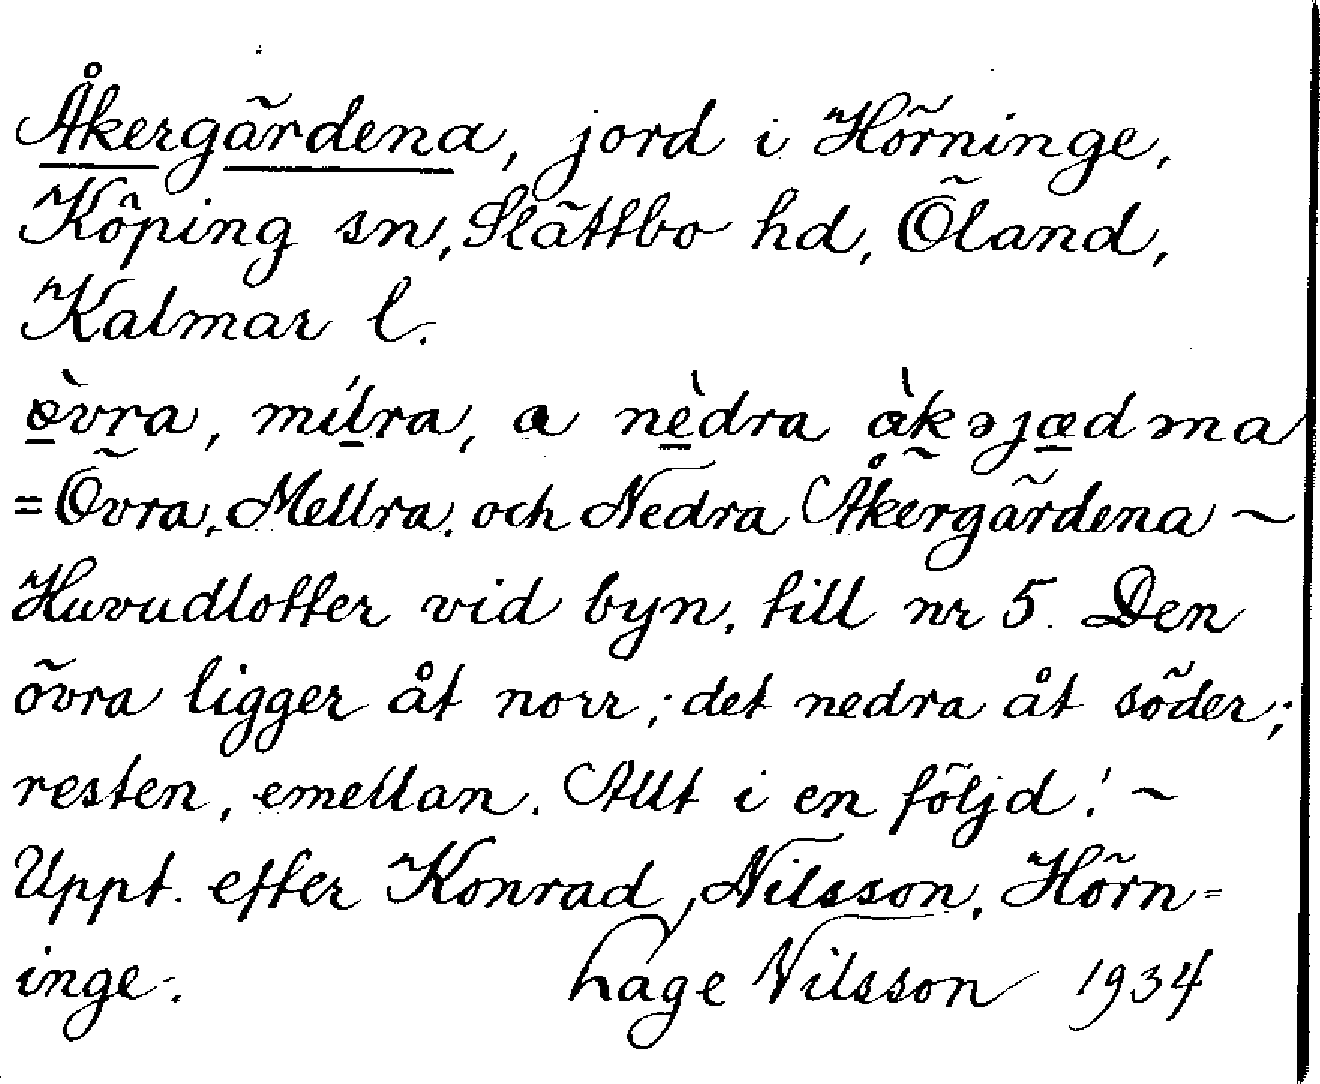 Åkergärdena, jord i Hörninge,
Köping sn, Slättbo hd, Öland,
Kalmar l.
övra, milra, a nèdra àkəjædma
=Övra, Mellra, och Nedra Åkergärdena ~
Huvudlotter vid byn, till nr 5. Den
övra ligger åt norr; det nedra åt söder;
resten, emellan. Allt i en följd! ~
Uppt. efter Konrad Nilsson, Hörn=
inge. Hage Nilsson 1934